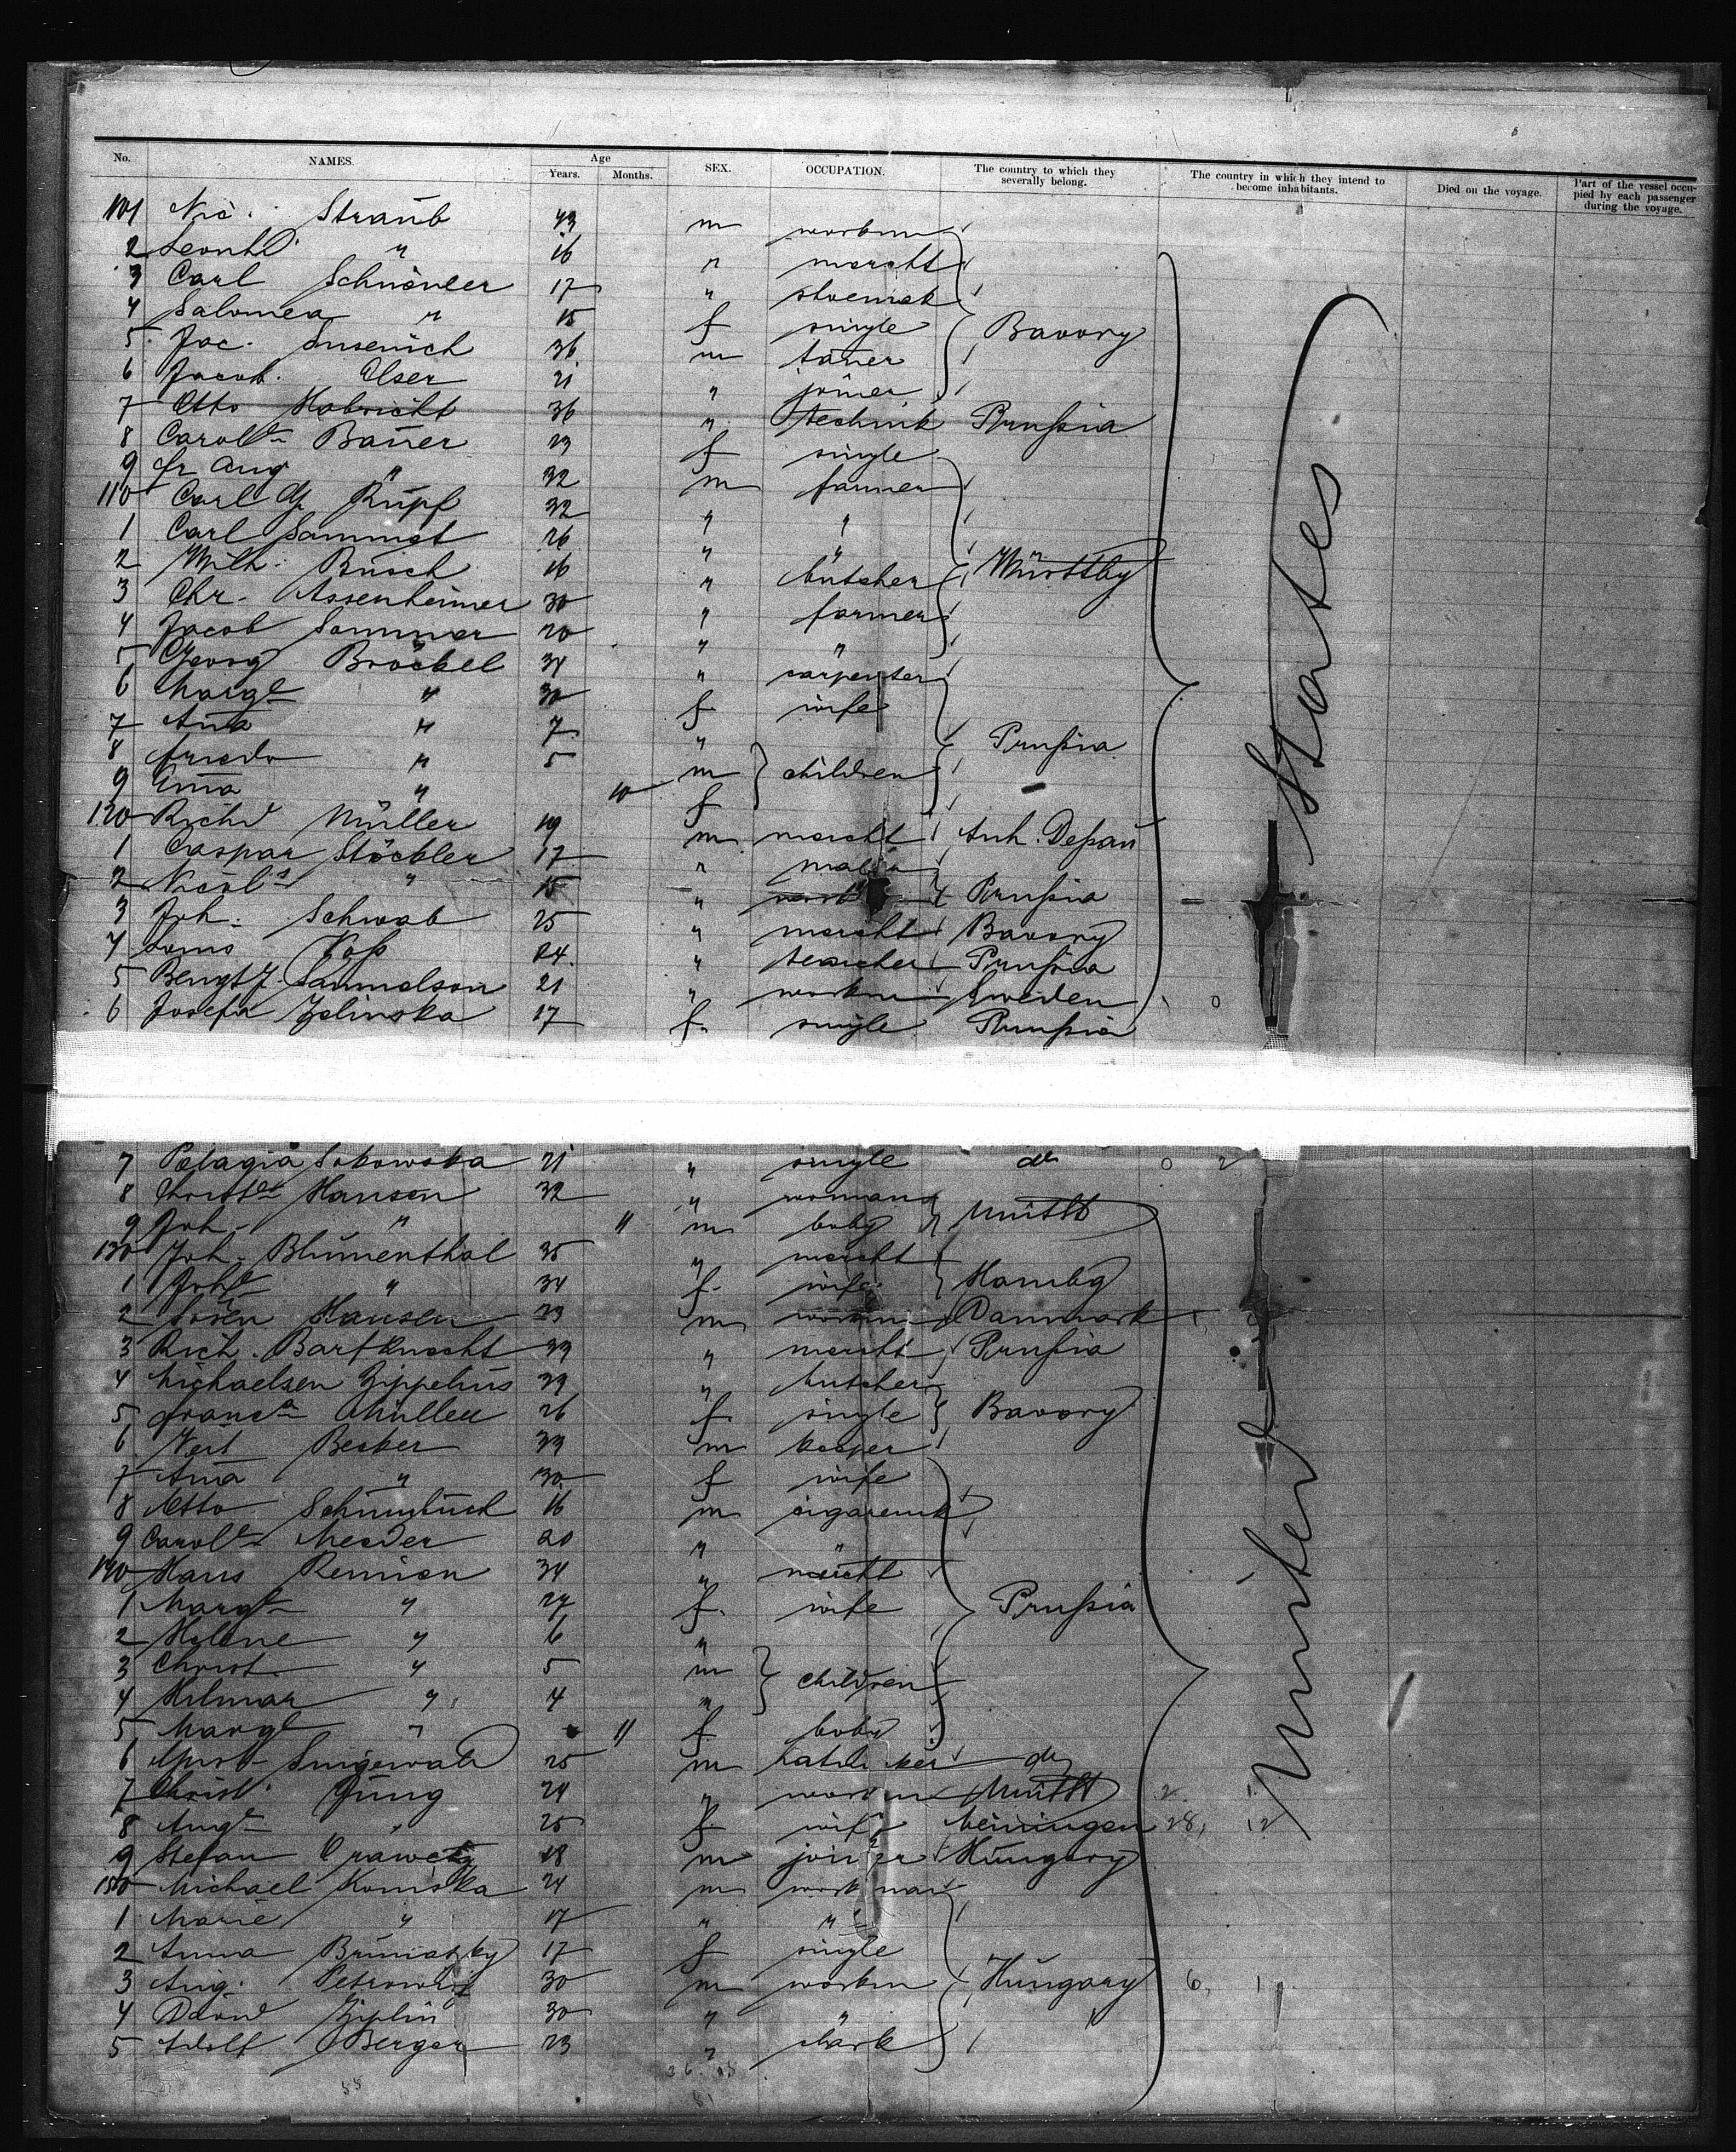 No. NAMES. Age Years. Months. SEX. OCCUPATION. The country to which they severally belong. The country in which they intend to become inhabitants. Died on the voyage. Part of the vessel occupied by each passenger during the voyage.
101 Nic. Straub 43 m workm
2 Leonhd " 16 " mercht
3 Carl 17 " shoemak
4 Salomea " 15 f single Bavory
5 Jac. 36 m taner
6 Jacob. Elser 21 " joiner
7 Otto Habricht 36 " technik Prußia
8 Carole Bauer 23 f single
9 Fr Aug " 32 m farmer
110 Carl G. Rupf 32 " "
1 Carl Sammet 26 " "
2 Wilh. Busch 16 " butcher Württbg
3 Chr. Assenheimer 30 " farmer
4 Jacob Sommer 20 " "
5 Georg Bröckel 34 " carpenter
6 Margt " 30 f wife
7 Ana " 7 " Prußia
8 " 5 m children
9 Ema " 10 f
120 Richd Müller 19 m mercht Anh. Deßau
1 Caspar Stöckler 17 "
2 Nicols " 15 " Prußia
3 Joh. Schwab 25 " mercht Bavory
4 Louis Voß 24 " teacher Prußia
5 Bengt J. Samuelson 21 " workm Sweden
6 Josefa Zelinska 17 f single Prußia
States
7 Pelagia Sokowska 21 " single do
8 Hansen 32 " womans
9 Joh. " 11 m baby
130 Joh. Blumenthal 35 " mercht
1 Johe " 34 f wife Hambg
2 Sören Hansen 23 m workm Danmark
3 Rich. Bartknecht 39 " mercht Prußia
4 Michaelsen Zippelius 39 " butcher
5 Franca Müller 26 f single Bavory
6 Veit Becker 39 m kooper
7 Ana " 30 f wife
8 Otto 16 m cigaremk
9 Carole Meder 20 " "
140 Hans Remien 34 " mercht
1 Margt " 27 f wife Prußia
2 Helene " 6 "
3 Christ. " 5 m children
4 Hilmar " 4 "
5 Margt " 11 f baby
6 25 m do
7 Christ. Jung 24 " workm
8 Auge " 25 f wife Meiningen 28, 12
9 Stefan 18 m joiner Hungary
150 Michael Komska 24 m workman
1 Marie " 17 " "
2 Anna 17 f single
3 Aug. 30 m workm Hungary 6, 1
4 David Ziplin 30 " "
5 Adolf Berger 23 " clark
United